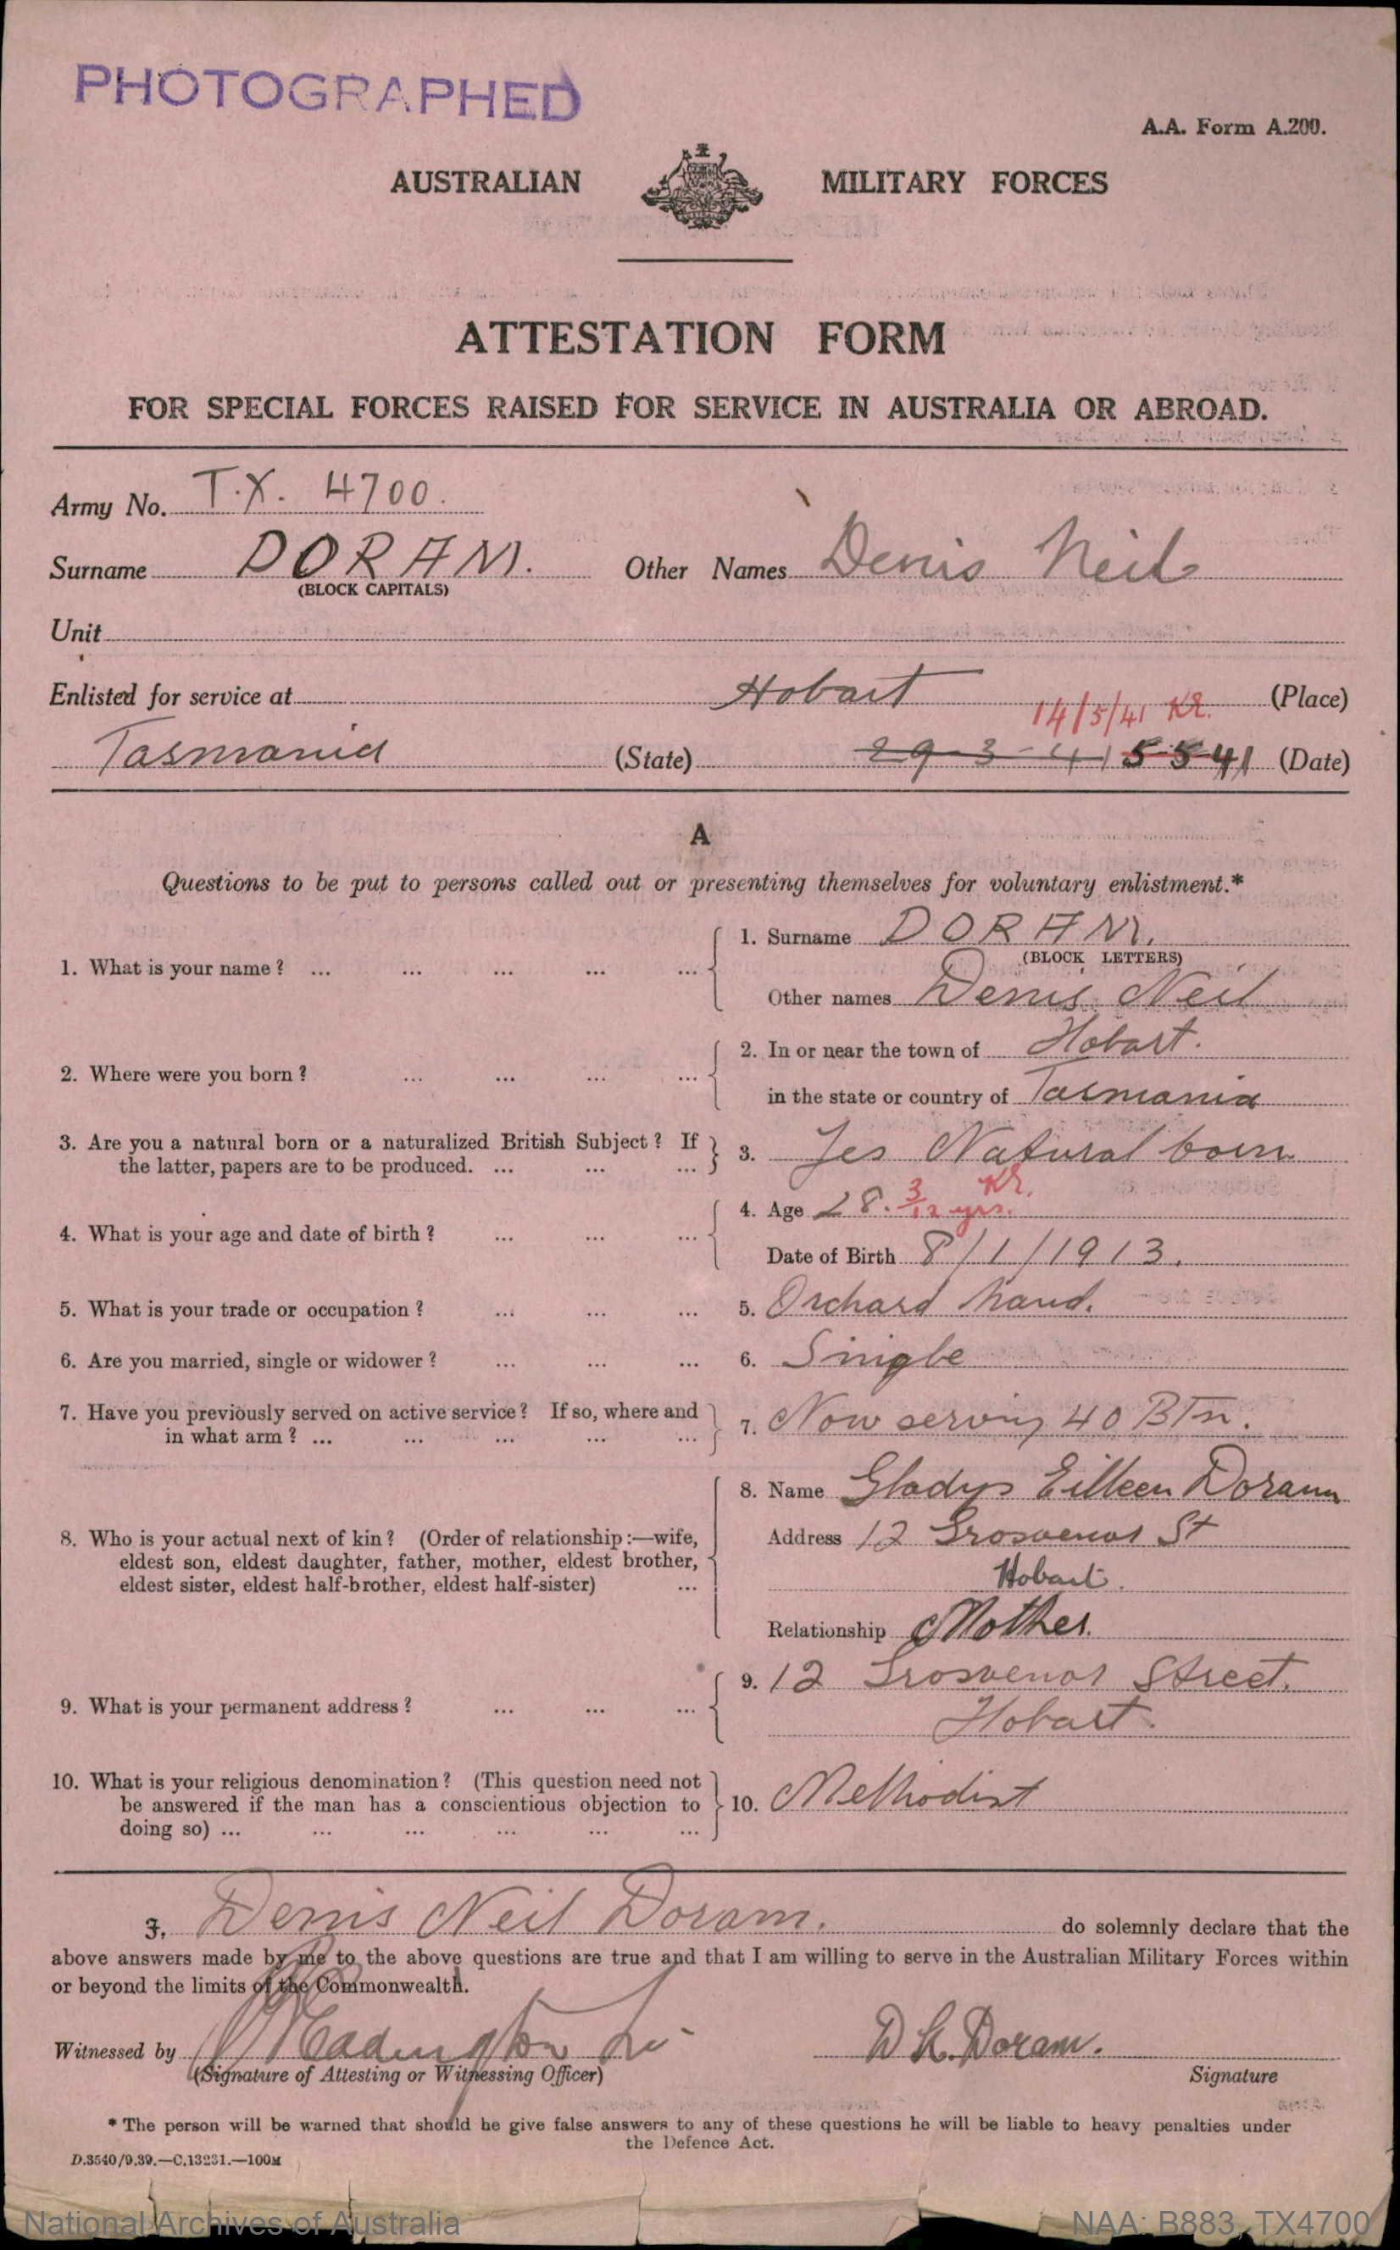 PHOTOGRAPHED
A.A. Form A.200.
AUSTRALIAN MILITARY FORCES
ATTESTATION FORM
FOR SPECIAL FORCES RAISED FOR SERVICE IN AUSTRALIA OR ABROAD.
Army No. T.X. 4700.
Surname DORAM. Other Names Denis Neil
(BLOCK CAPITALS)
Unit
Enlisted for service at Hobart (Place)
14/5/41
Tasmania (State) 29-3-41 5-5-41 (Date)
A
Questions to be put to persons called out or presenting themselves for voluntary enlistment.*
1. What is your name? ... ... ... ... ...
1. Surname DORAM.
(BLOCK LETTERS)
Other names Denis Neil
2. Where were you born? ... ... ... ...
2. In or near the town of Hobart.
in the state or country of Tasmania
3. Are you a natural born or a naturalized British Subject? If
the latter, papers are to be produced. ... ... ...
3. Yes Natural born
4. What is your age and date of birth? ... ... ...
4. Age 28. 3/12 yrs.
Date of Birth 8/1/1913.
5. What is your trade or occupation? ... ... ...
5. Orchard hand.
6. Are you married, single or widower? ... ... ...
6. Single
7. Have you previously served on active service? If so, where and
in what arm? ... ... ... ... ...
7. Now serving 40 BTn.
8. Who is your actual next of kin? (Order of relationship:—wife,
eldest son, eldest daughter, father, mother, eldest brother,
eldest sister, eldest half-brother, eldest half-sister) ...
8. Name Gladys Eilleen Doram
Address 12 Grosvenor St
Hobart.
Relationship Mother.
9. What is your permanent address? ... ... ...
9. 12 Grosvenor Street.
Hobart.
10. What is your religious denomination? (This question need not
be answered if the man has a conscientious objection to
doing so) ... ... ... ... ... ...
10. Methodist
I, Denis Neil Doram. do solemnly declare that the
above answers made by me to the above questions are true and that I am willing to serve in the Australian Military Forces within
or beyond the limits of the Commonwealth.
Witnessed by
D N. Doram.
(Signature of Attesting or Witnessing Officer) Signature
* The person will be warned that should he give false answers to any of these questions he will be liable to heavy penalties under
the Defence Act.
D.3540/9.39.—C.13231.—100M
National Archives of Australia NAA: B883, TX4700